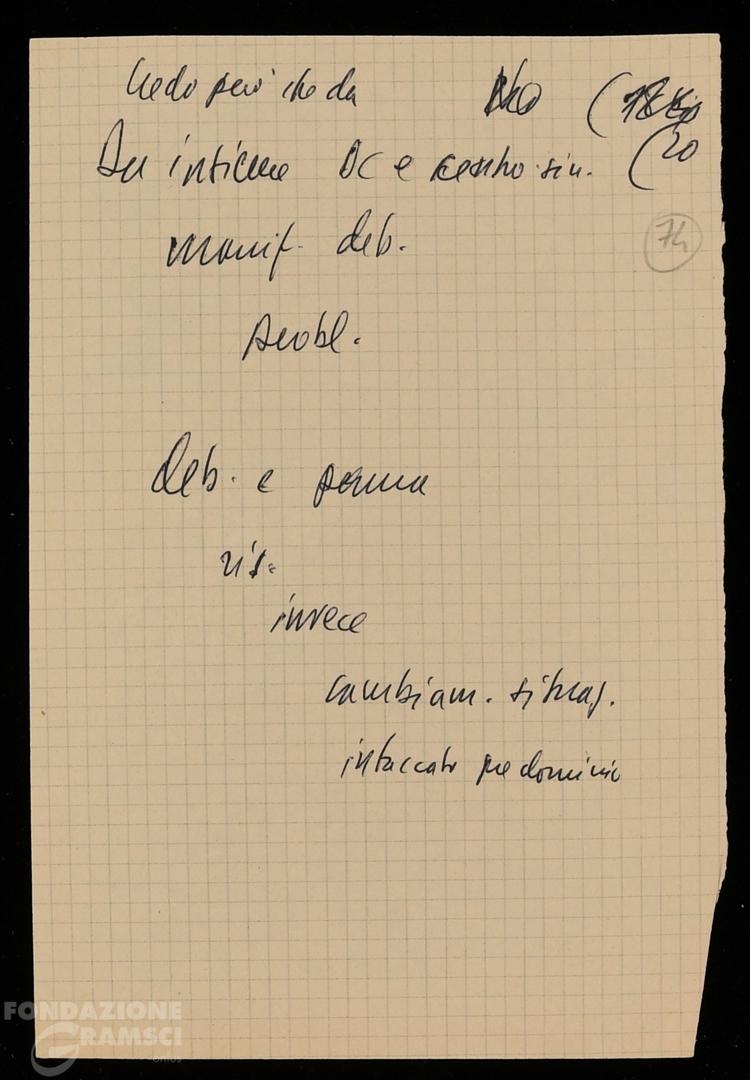 Credo però che da (18
Da insieme DC e centro-sin. (20
74
manif. deb.
probl.
deb. e
ris.
invece
cambiam. situaz.
intaccato predominio
FONDAZIONE
GRAMSCI
onlus